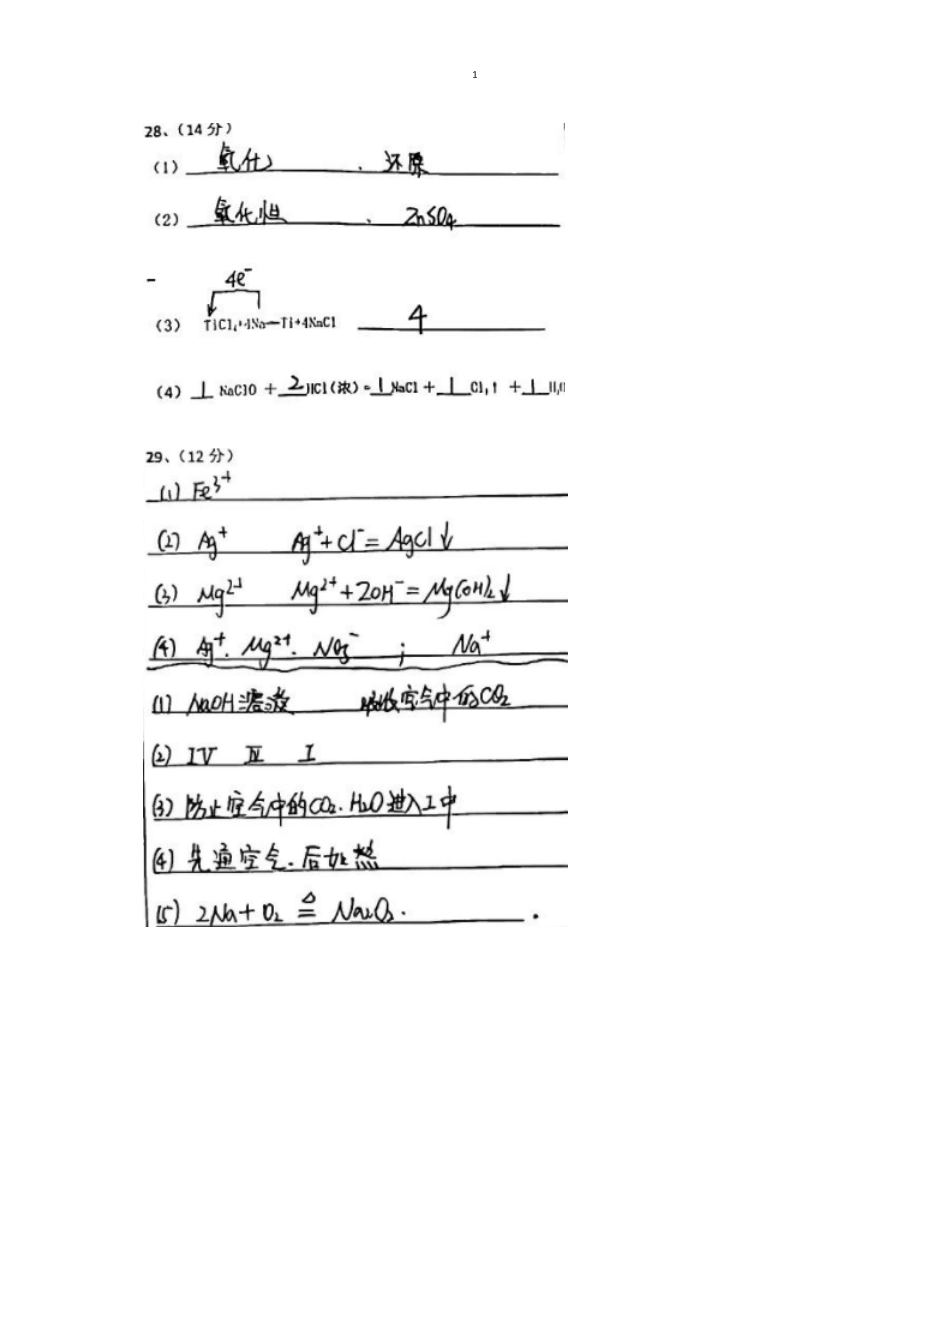 1
28、(14 分)
(1) 氧化 、 还原
(2) 氧化性 、 ZnSO4
4e⁻
(3) TiCl₄+4Na=Ti+4NaCl 4
(4) 1 NaClO + 2 HCl(浓)= 1 NaCl + 1 Cl₂↑ + 1 H₂O
29、(12 分)
(1) Fe³⁺
(2) Ag⁺ Ag⁺+Cl⁻=AgCl↓
(3) Mg²⁺ Mg²⁺+2OH⁻=Mg(OH)₂↓
(4) Ag⁺、Mg²⁺、NO₃⁻ ; Na⁺
(1) NaOH溶液 吸收空气中的CO₂
(2) IV III I
(3) 防止空气中的CO₂、H₂O进入I中
(4) 先通空气、后加热
(5) 2Na+O₂ ≜ Na₂O₂.